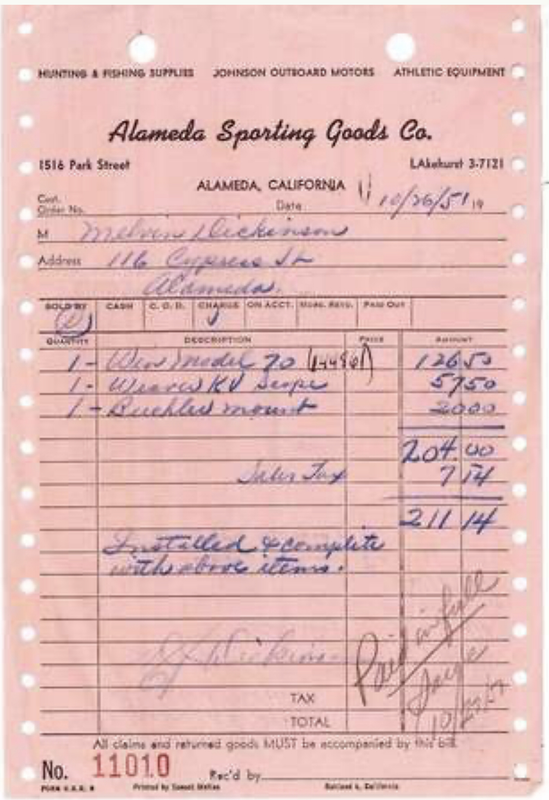 HUNTING & FISHING SUPPLIES JOHNSON OUTBOARD MOTORS ATHLETIC EQUIPMENT
Alameda Sporting Goods Co.
1516 Park Street LAkehurst 3-7121
ALAMEDA, CALIFORNIA
Cust. Order No. Date 10/26/51 19
M Melvin Dickinson
Address 116 Cypress St
Alameda.
SOLD BY CASH C. O. D. CHARGE ON ACCT. MDSE. RETD. PAID OUT
QUANTITY DESCRIPTION PRICE AMOUNT
1 - Win Model 70 126 50
1 - Weaver KV Scope 57 50
1 - Buehler mount 20 00
204.00
Sales Tax 7 14
211 14
Installed & complete
with above items.
Dickinson
Paid in full
TAX
TOTAL
10/27/51
All claims and returned goods MUST be accompanied by this bill.
No. 11010 Rec'd by
Printed by Oakland 6, California